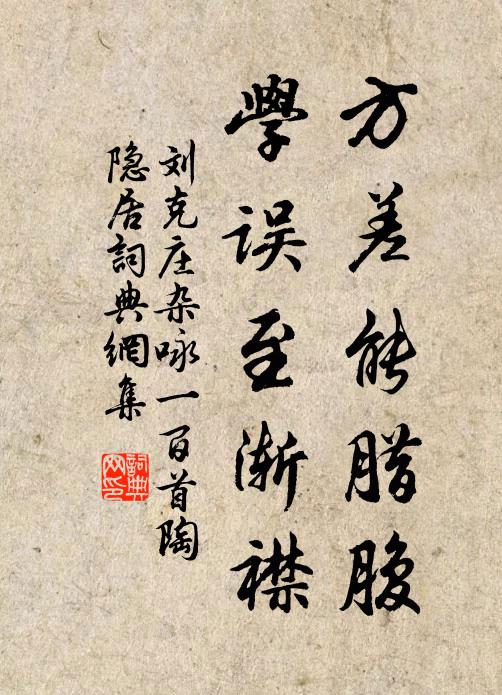 方差能腊腹
學误至渐襟
刘克庄杂咏一百首陶
隐居詞典網集
詞典网印